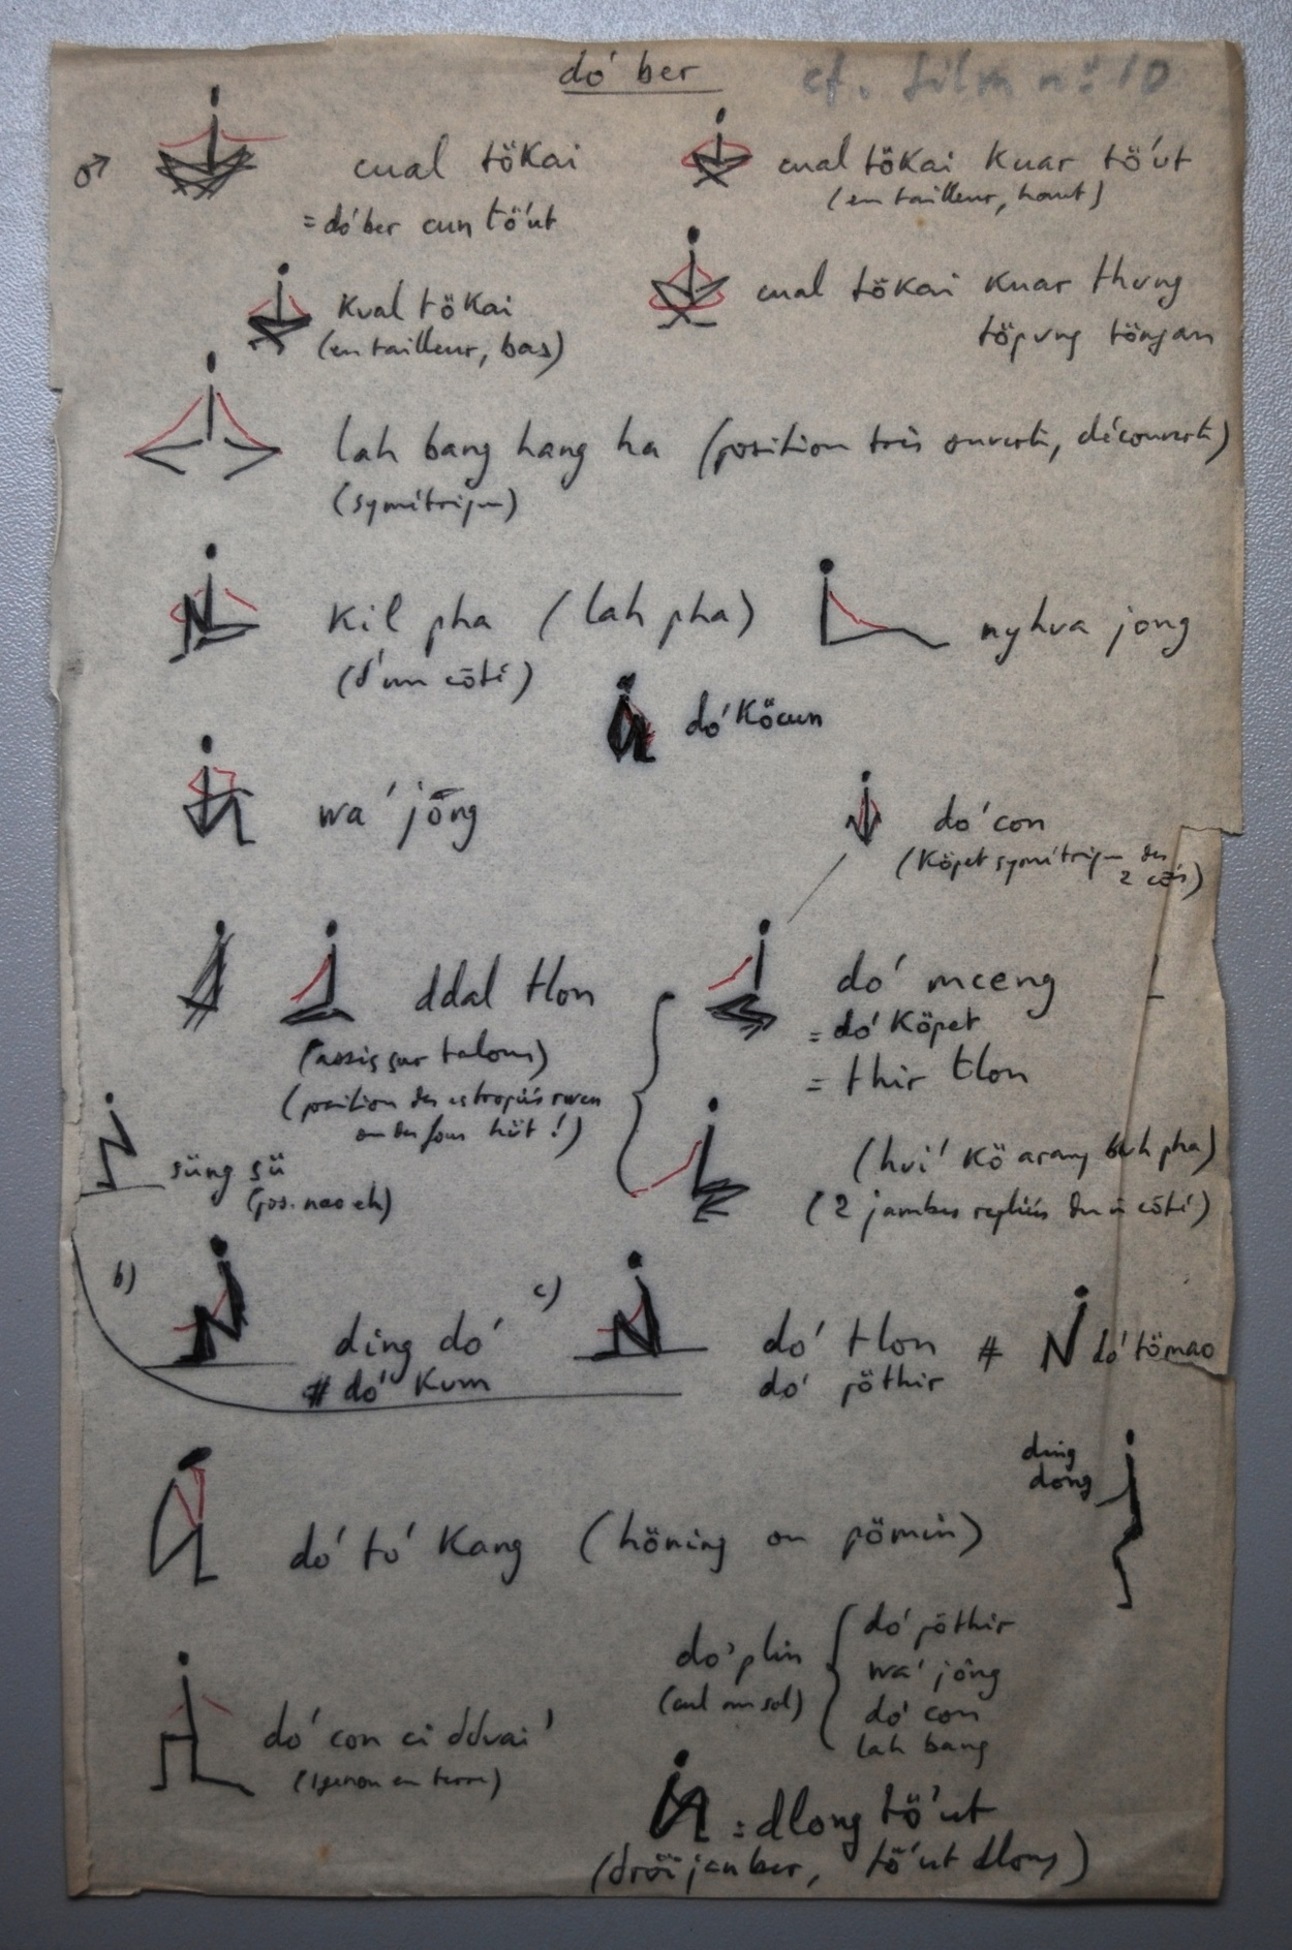 dó ber
cf. film n° 10
♂ cual tökai
= dó ber cun tö'ut
cual tökai kuar tö'ut
(en tailleur, haut)
kual tökai
(en tailleur, bas)
cual tökai kuar thung
töpung töngan
lah bang hang ha (position très ouverte, découverte)
(symétrique)
kil pha (lah pha)
(d'un côté)
nghua jong
dó' köcun
wa' jōng
dó' con
(köpet symétrique des
2 côtés)
ddal tlon
(assis sur talons)
(position des estropiés
ou des fous hüt !)
dó' mceng
= dó' köpet
= thir tlon
süng sü
(pos. nao eh)
(hvi' kö arang buh pha)
(2 jambes repliées du côté)
b)
ding dó'
# dó' kum
c)
dó' tlon # dó' tömao
dó' pöthir
ding
dong
dó' tó' kang (höning ou pömin)
dó' plin
(cul au sol)
dó' pöthir
wa' jông
dó' con
lah bang
dó' con ci ddvai'
(1 genou en terre)
= dlong tö'ut
(dröi jan ber, tö'ut dlong)